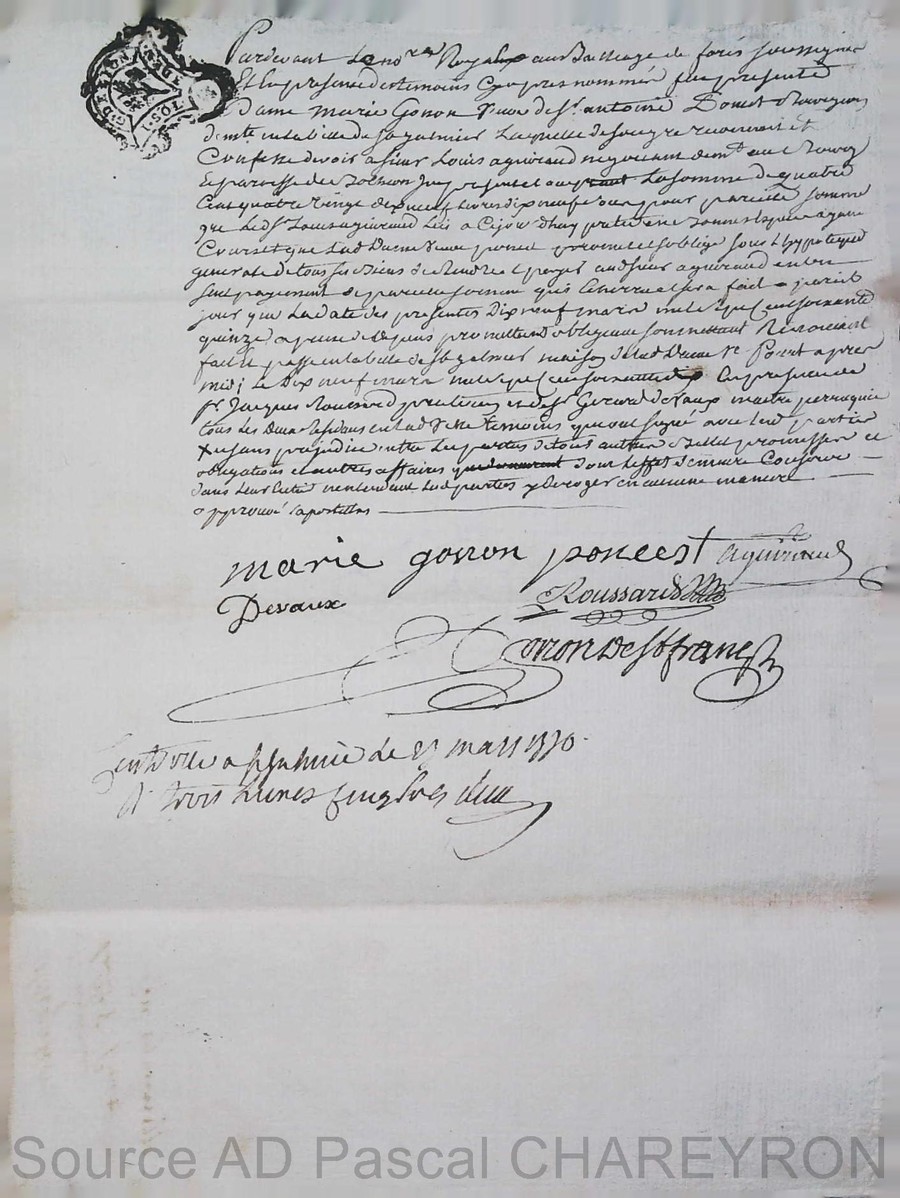 Pardevant Le no.re Royal au Bailliage de forés soussigné
Et En presence des temoins Cy apres nommés fut presente
Dame marie Gonon Veuve de Sr. antoine Poncet Bourgeois
demt. en la ville de St galmier Laquelle de son gre reconnoit et
Confesse devoir a Sieur Louis aguiraud negociant demt. au Bourg
Et parroisse de present et la somme de quatre
Cent quatre vingt dix neuf livres dix neuf sols pour pareille somme
que Led Sr. Louis aguiraud Luy a Cejourd'huy preté en Bonnes Especes ayant
Cours et que Lad Dame Veuve poncet promet et s'oblige sous L'hypoteque
generale de tous ses Biens de Rendre et payer aud Sieur aguiraud en un
seul payement de pareille somme qui Echerra et sera fait a pareil
jour que La date des presentes Dix neuf mars mil sept Cent soixante
quinze a peine de depens promettant obligeant soumettant Renoncant
fait et passé en la ville de St galmier maison de Lad Dame Ve. Poncet apres
midi Le Dix neuf mars mil sept Cent soixante dix En presence de
Sr. Jacques Roussard praticien et de Sr. Devaux maitre perruquier
tous les Deux Residens en Lad Ville temoins qui ont signé avec Lesd parties
sans prejudice entre Les parties de tous autres Billets promesses
obligations et autres affaires
dans Leur Entier n'entendant Lesd parties y deroger en aucune maniere
approuvé apostilles
marie gonon poncest aguiraud
Devaux Roussard
Gonon De St franc
a St galmier Le 27 mars 1770.
R. trois Livres cinq sols
Source AD Pascal CHAREYRON